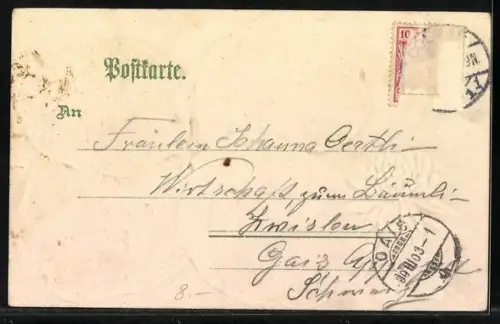 Postkarte.
10
An
Fräulein Johanna Oertli
Wirtschaft, zum Bäumli-
Zwislen
Gais App
Schweiz
GAIS
03-1
8.-